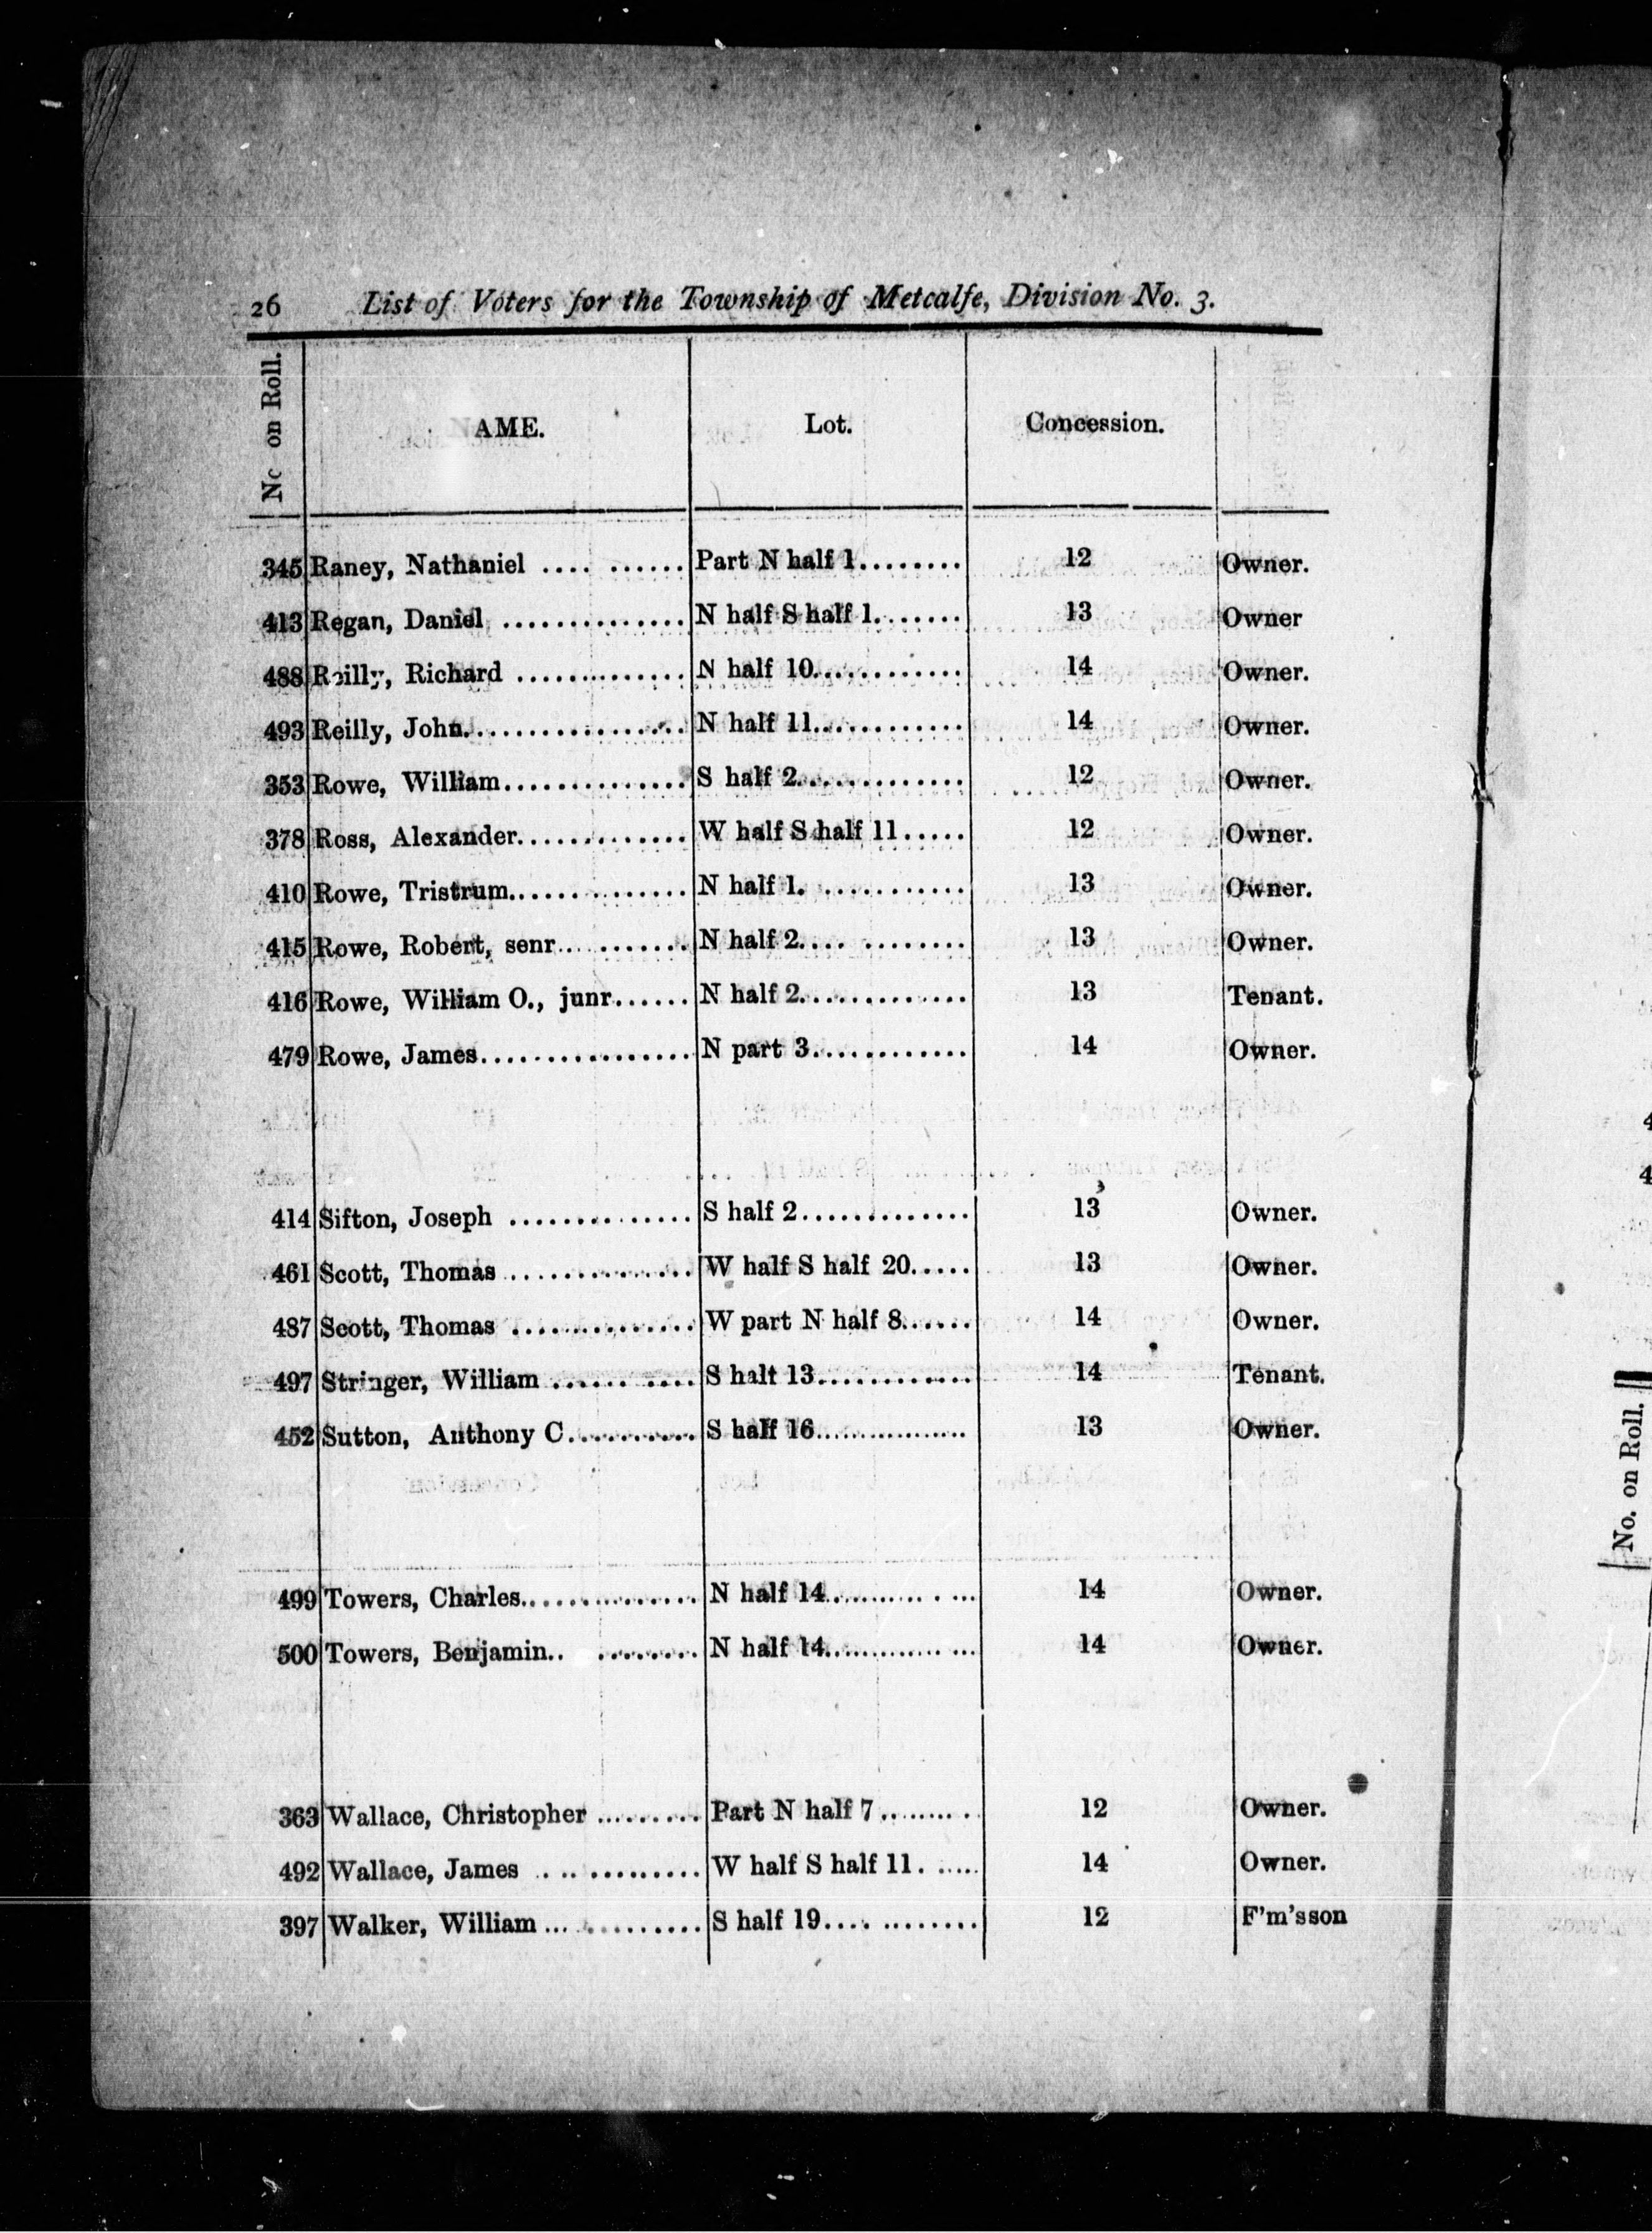 26 List of Voters for the Township of Metcalfe, Division No. 3.
No on Roll. NAME. Lot. Concession.
345 Raney, Nathaniel .... ...... Part N half 1........ 12 Owner.
413 Regan, Daniel .............. N half S half 1....... 13 Owner
488 Reilly, Richard ............. N half 10............ 14 Owner.
493 Reilly, John................. N half 11............ 14 Owner.
353 Rowe, William.............. S half 2............. 12 Owner.
378 Ross, Alexander............. W half S half 11..... 12 Owner.
410 Rowe, Tristrum.............. N half 1. ........... 13 Owner.
415 Rowe, Robert, senr.......... N half 2.... ........ 13 Owner.
416 Rowe, William O., junr...... N half 2............. 13 Tenant.
479 Rowe, James................ N part 3............ 14 Owner.
414 Sifton, Joseph .............. S half 2............. 13 Owner.
461 Scott, Thomas .............. W half S half 20..... 13 Owner.
487 Scott, Thomas .............. W part N half 8...... 14 Owner.
497 Stringer, William ...... .... S halt 13............ 14 Tenant.
452 Sutton, Anthony C.......... S half 16................ 13 Owner.
499 Towers, Charles.............. N half 14........... . ... 14 Owner.
500 Towers, Benjamin.. ........ N half 14............. ... 14 Owner.
363 Wallace, Christopher ......... Part N half 7 ........ . 12 Owner.
492 Wallace, James . .. ......... W half S half 11. ..... 14 Owner.
397 Walker, William ... . ......... S half 19.... ........ 12 F'm'sson
4
4
No. on Roll.